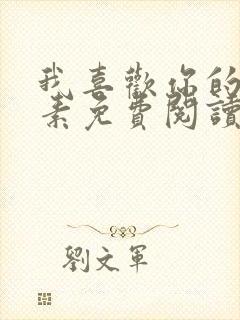 我喜歡你的
素免費閱讀
劉文軍